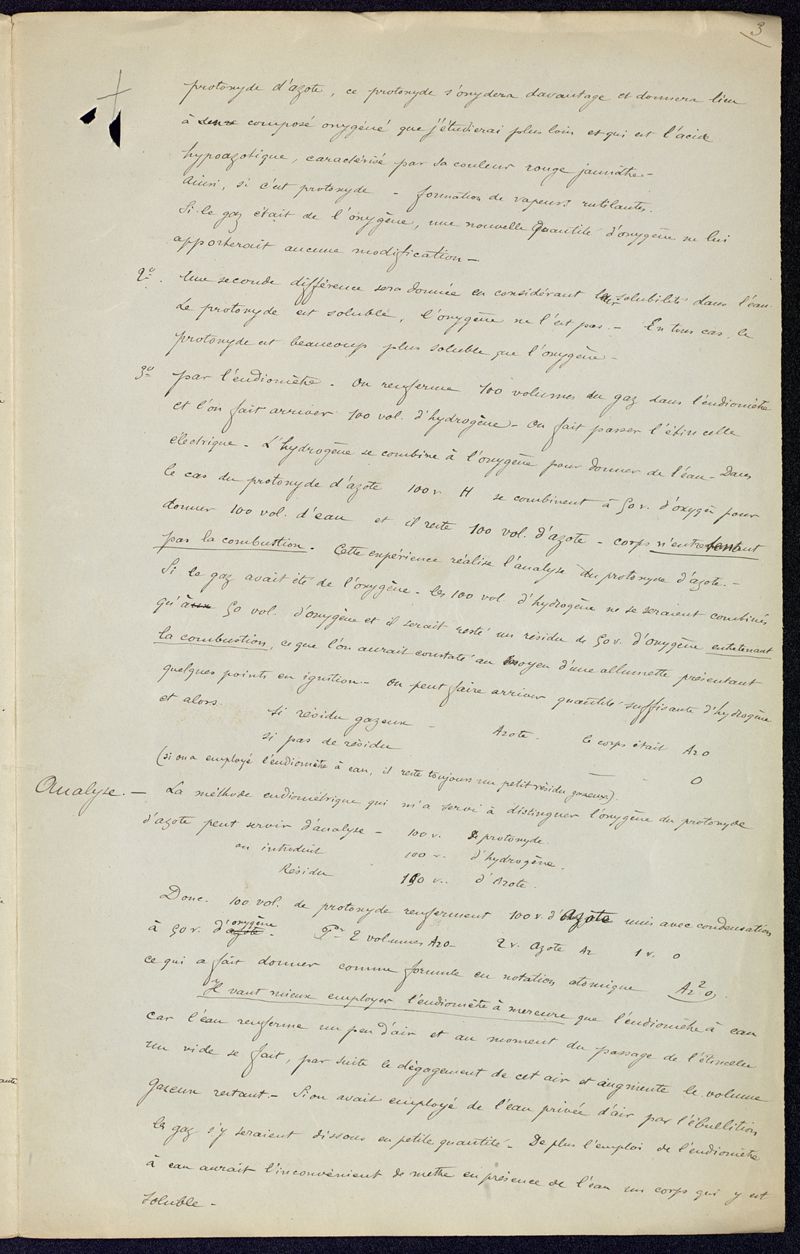 3
protoxyde d'azote, ce protoxyde s'oxydera davantage et donnera lieu
à composé oxygéné que j'étudierai plus loin et qui est l'acide
hypoazotique, caractérisé par sa couleur rouge jaunâtre -
Ainsi, si c'est protoxyde - formation de vapeurs rutilantes.
Si le gaz était de l'oxygène, une nouvelle quantité d'oxygène ne lui
apporterait aucune modification -
2º. Une seconde différence sera donnée en considérant la solubilité dans l'eau.
Le protoxyde est soluble, l'oxygène ne l'est pas. - En tous cas, le
protoxyde est beaucoup plus soluble que l'oxygène -
3º par l'eudiomètre - On renferme 100 volumes du gaz dans l'eudiomètre
et l'on fait arriver 100 vol. d'hydrogène - On fait passer l'étincelle
électrique - L'hydrogène se combine à l'oxygène pour donner de l'eau - Dans
le cas du protoxyde d'azote 100 v. H se combinent à 50 v. d'oxygèn pour
donner 100 vol. d'eau et il reste 100 vol. d'azote - corps n'entretenant
pas la combustion. Cette expérience réalise l'analyse du protoxyde d'azote. -
Si le gaz avait été de l'oxygène - les 100 vol. d'hydrogène ne se seraient combinés
qu'à 50 vol. d'oxygène et il serait resté un résidu de 50 v. d'oxygène entretenant
la combustion, ce que l'on aurait constaté au moyen d'une allumette présentant
quelques points en ignition - On peut faire arriver quantité suffisante d'hydrogène
et alors.
si résidu gazeux - Azote. le corps était AzO
si pas de résidu - O
(si on a employé l'eudiomètre à eau, il reste toujours un petit résidu gazeux).
Analyse. - La méthode eudiométrique qui m'a servi à distinguer l'oxygène du protoxyde
d'azote peut servir d'analyse - 100 v. protoxyde.
on introduit 100 v. d'hydrogène.
Résidu 100 v. d'Azote.
Donc. 100 vol. de protoxyde renferment 100 v. d'Azote unis avec condensation
à 50 v. d'azote oxygène. Pr 2 volumes AzO 2 v. Azote Az 1 v. O
ce qui a fait donner comme formule en notation atomique Az²O.
Il vaut mieux employer l'eudiomètre à mercure que l'eudiomètre à eau
car l'eau renferme un peu d'air et au moment du passage de l'étincelle
un vide se fait, par suite le dégagement de cet air et augmente le volume
gazeux restant. - Si on avait employé de l'eau privée d'air par l'ébullition
les gaz s'y seraient dissous en petite quantité - De plus l'emploi de l'eudiomètre
à eau aurait l'inconvénient de mettre en présence de l'eau un corps qui y est
soluble -